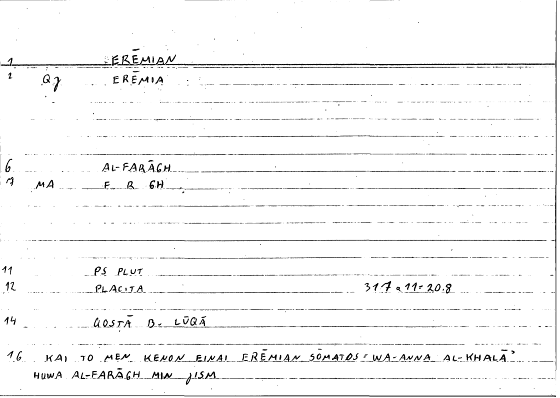 1 ERĒMIAN
1 Qj ERĒMIA
6 AL-FARĀGH
7 MA F R GH
11 PS PLUT
12 PLACITA 317a11=20.8
14 QOSTĀ B. LŪQĀ
16 KAI TO MEN KENON EINAI ERĒMIAN SŌMATOS = WA-ANNA AL-KHALĀ'
HUWA AL-FARĀGH MIN JISM